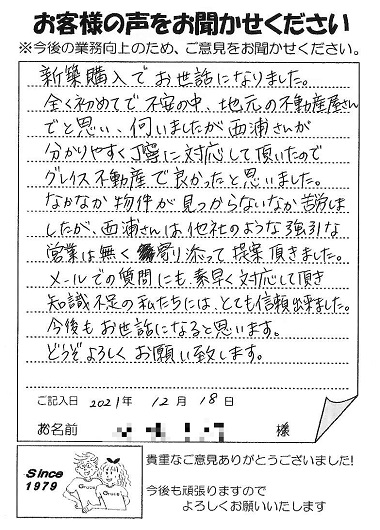 お客様の声をお聞かせください
※今後の業務向上のため、ご意見をお聞かせください。
新築購入でお世話になりました。
全く初めてで不安の中、地元の不動産屋さん
でと思い、伺いましたが西浦さんが
分かりやすく丁寧に対応して頂いたので
グレイス不動産で良かったと思いました。
なかなか物件が見っからないなか苦労しま
したが、西浦さんは他社のような強引な
営業は無く寄り添って提案頂きました。
メールでの質問にも素早く対応して頂き
知識不足の私たちには、とても信頼出来ました。
今後もお世話になると思います。
どうぞよろしくお願い致します。
ご記入日 2021年 12月 18日
お名前 様
Since
1979
Grace Grace
貴重なご意見ありがとうございました!
今後も頑張りますので
よろしくお願いいたします